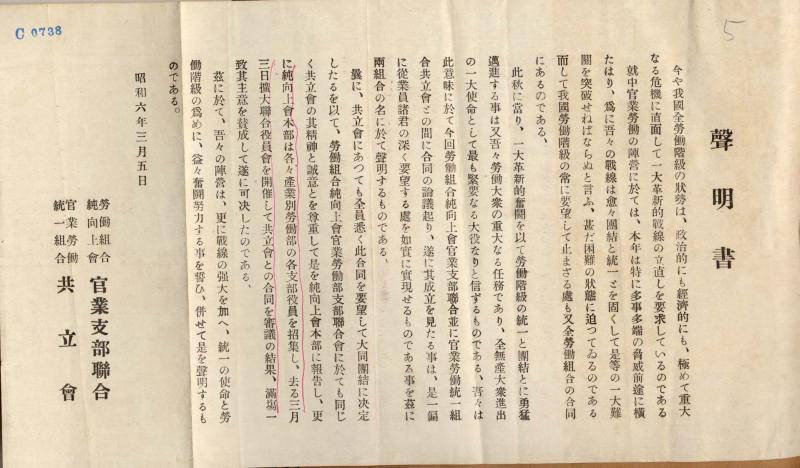 C 0738
5
聲明書
今や我國全勞働階級の狀勢は、政治的にも經濟的にも、極めて重大
なる危機に直面して一大革新的戰線の立直しを要求しているのである
就中官業勞働の陣營に於ては、本年は特に多事多端の脅威前途に橫
たはり、爲に吾々の戰線は愈々團結と統一とを固くして是等の一大難
關を突破せねばならぬと言ふ、甚だ困難の狀態に迫つてゐるのである
而して我國勞働階級の常に要望して止まざる處も又全勞働組合の合同
にあるのである、
此秋に當り、一大革新的奮鬪を以て勞働階級の統一と團結とに勇猛
邁進する事は又吾々勞働大衆の重大なる任務であり、全無產大衆進出
の一大使命として最も緊要なる大役なりと信ずるものである、吾々は
此意味に於て今回勞働組合純向上會官業支部聯合並に官業勞働統一組
合共立會との間に合同の論議起り、遂に其成立を見たる事は、是一偏
に從業員諸君の深く要望する處を如實に實現せるものである事を茲に
兩組合の名に於て聲明するものである、
曩に、共立會にあつても全員悉く此合同を要望して大同團結に決定
したるを以て、勞働組合純向上會官業勞働部支部聯合會に於ても同じ
く共立會の其精神と誠意とを尊重して是を純向上會本部に報告し、更
に純向上會本部は各々產業別勞働部の各支部役員を招集し、去る三月
三日擴大聯合役員會を開催して共立會との合同を審議の結果、滿場一
致其主意を賛成して遂に可決したのである、
茲に於て、吾々の陣營は、更に戰線の强大を加へ、統一の使命と勞
働階級の爲めに、益々奮鬪努力する事を誓ひ、併せて是を聲明するも
のである。
昭和六年三月五日
勞働組合
純向上會 官業支部聯合
官業勞働
統一組合 共立會